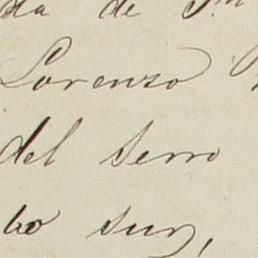 da de Sn
Lorenzo
del serro
bo sur,